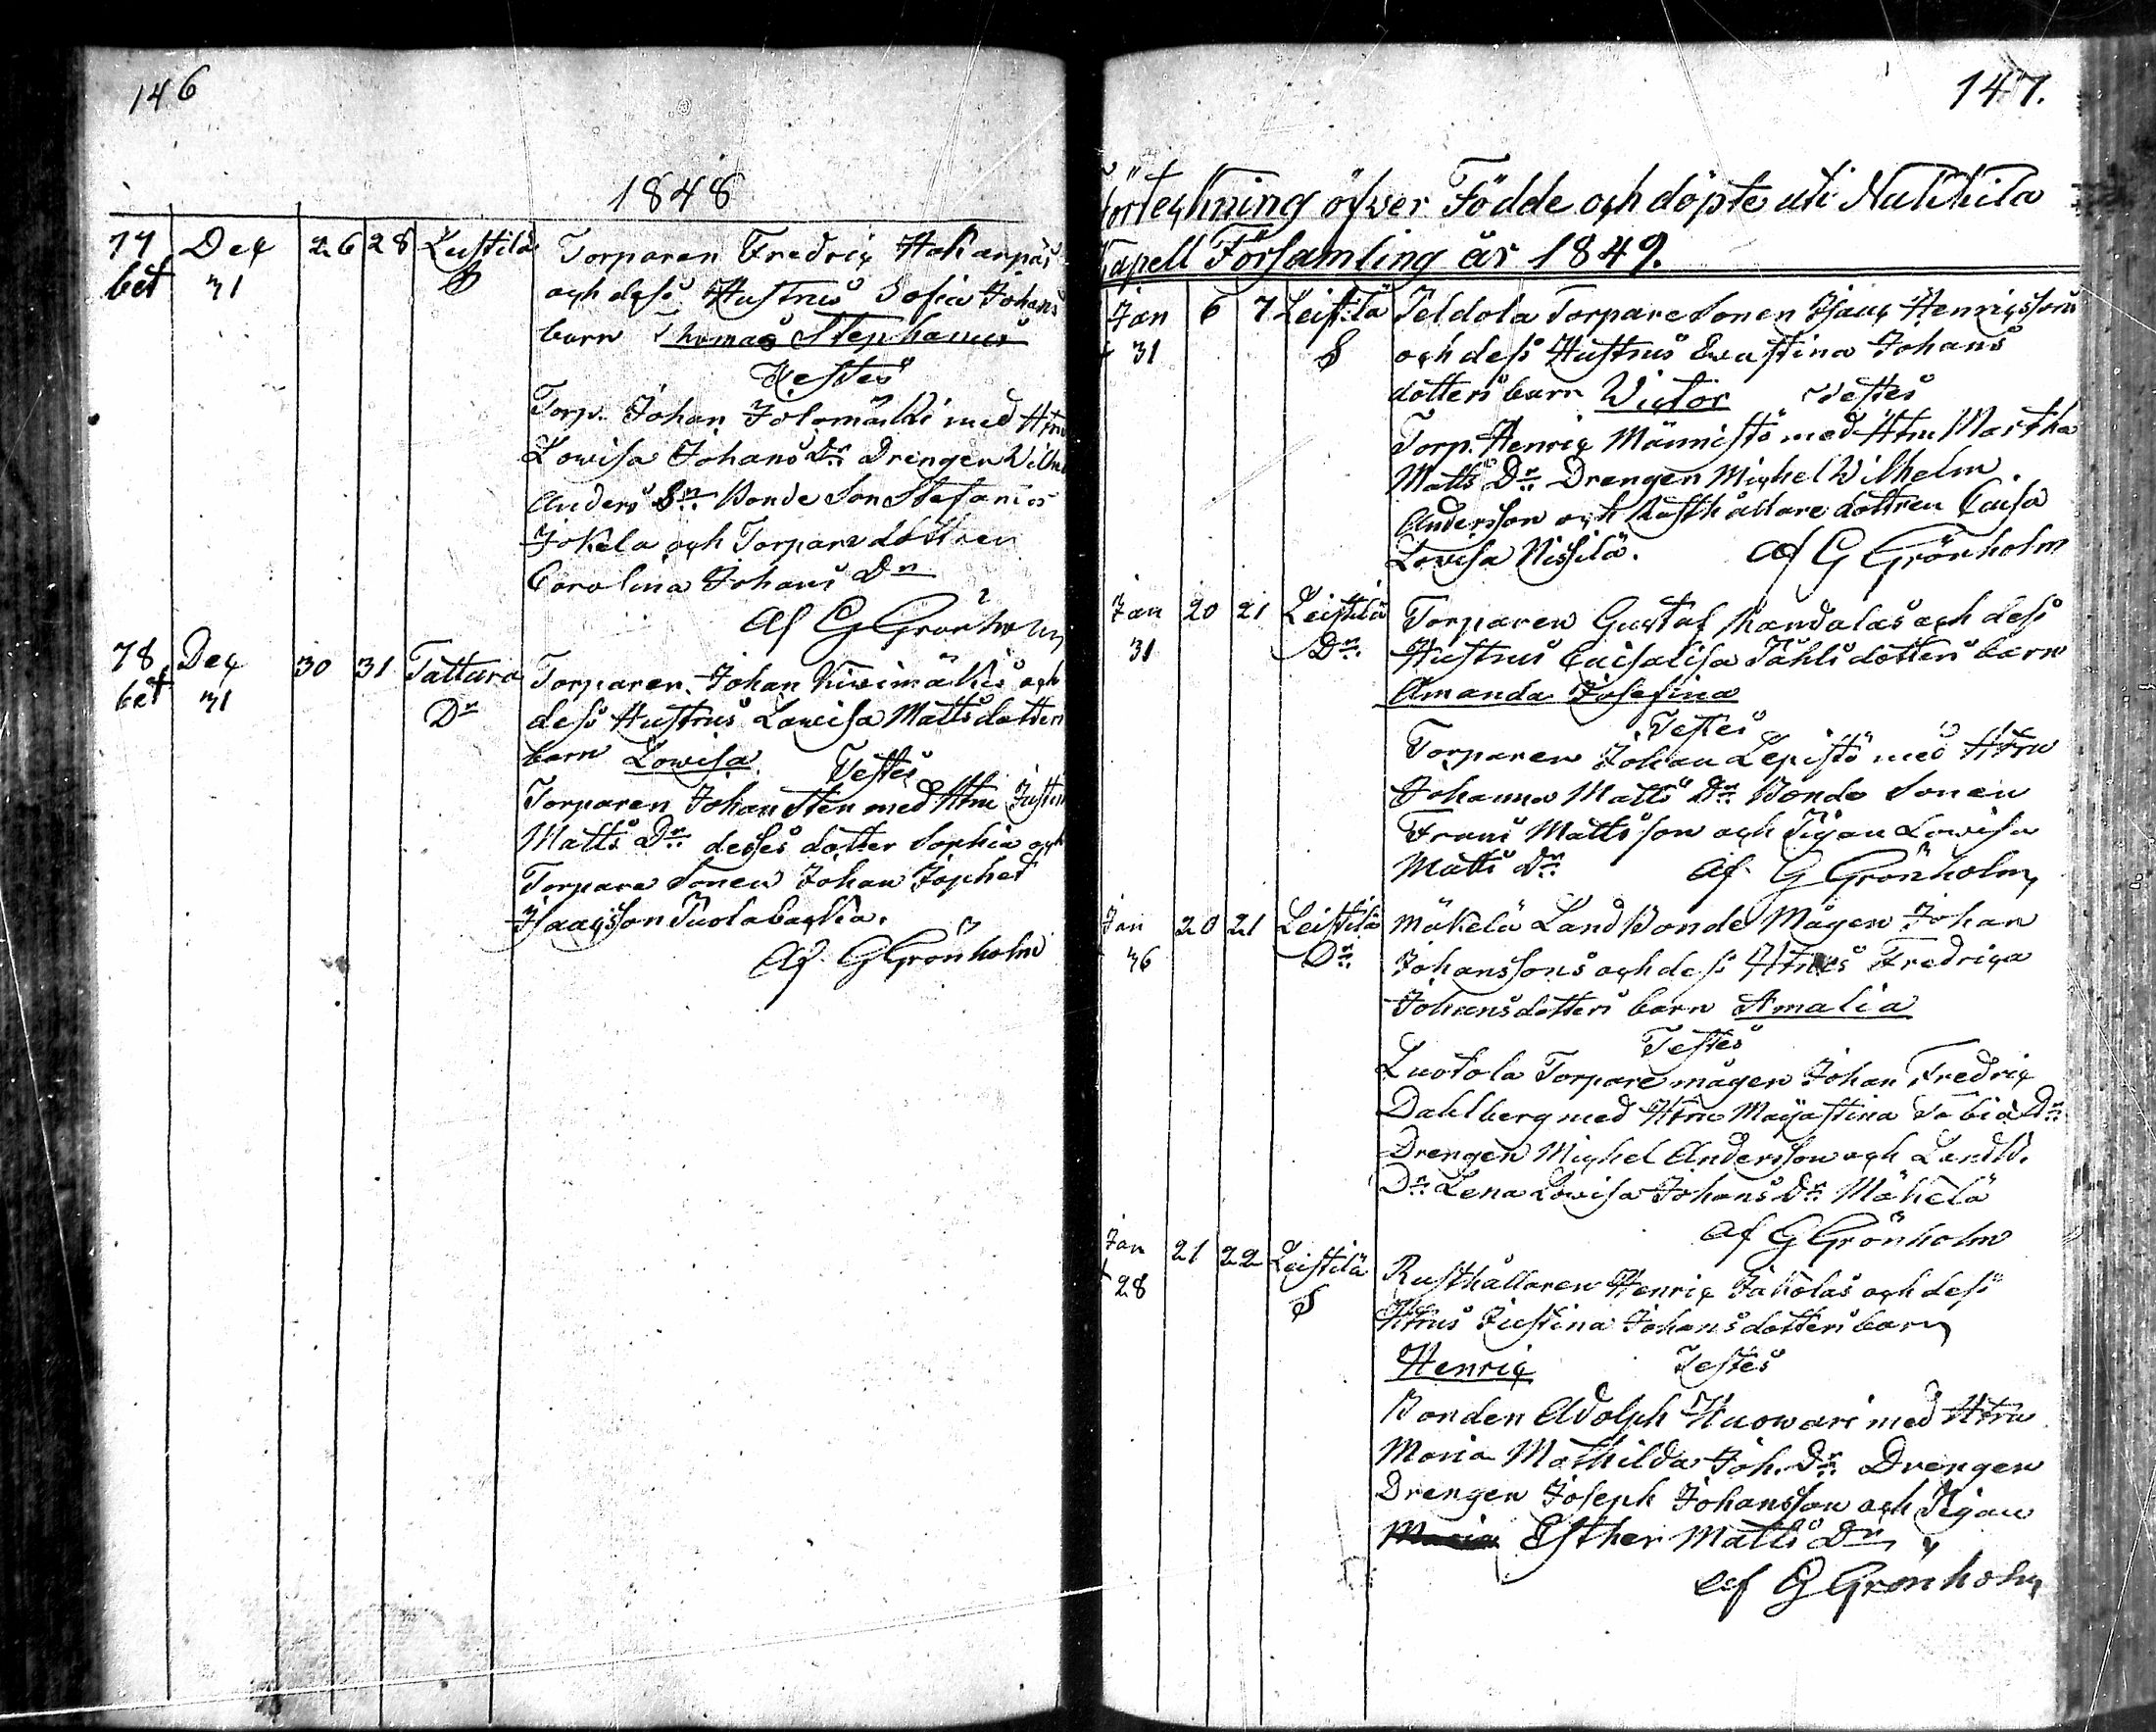 146
1848
77 Dec 26 28 Leistilä Torparen Fredric Hakanpäs
bet 31 S och dess Hustrus Sofia Johans
barn Thomas Stephanus
Testes
Torp. Johan Jolomäkki med Hru
Lowisa Johans Dr Drengen Wilh
Anders Sn Bonde Son Stefanus
Jokela och Torpare dottren
Carolina Johans Dr
Af G Grönholm
78 Dec 30 31 Tattara Torparen Johan Kiwimäkis och
bet 31 Dr dess Hustrus Lowisa Matts dotters
barn Lowisa Testes
Torparen Johan Sten med Hru Justin
Matts Dr desses dotter Sophia och
Torpare Sonen Johan Japhet
Isaacsson Tuolabacka.
Af G Grönholm
147.
Förteckning öfver Födde och döpte uti Nakkila
Capell Församling år 1849.
Jan 6 7 Leistilä Teldola Torpare Sonen Isaac Henricssons
31 S och dess Hustrus Ewastina Johans
dotters barn Victor Testes
Torp. Henric Männistö med Hru Martha
Matts Dr Drengen Michel Wilhelm
Andersson och Rusthållare dottren Caisa
Lowisa Nissilä. Af G Grönholm
Jan 20 21 Leistilä Torparen Gustaf Kandalas och dess
31 Dr Hustrus Caisalisa Påhls dotters barn
Amanda Josefina
Testes
Torparen Johan Lepistö med Hru
Johanna Matts Dr Bonde Sonen
Frans Mattsson och Pigan Lowisa
Matts Dr Af G Grönholm
Jan 20 21 Leistilä Mäkelä Land Bonde Mågen Johan
36 Dr Johanssons och dess Hrus Fredrica
Johansdotters barn Amalia
Testes
Luotola Torpare mågen Johan Fredric
Dahlberg med Hru Majastina Tobias Dr
Drengen Michel Andersson och LandB.
Dr Lena Lowisa Johans Dr Mäkelä
Af G Grönholm
Jan 21 22 Leistilä Rusthållaren Henric Jaakolas och dess
28 S Hrus Justina Johansdotters barn
Henric Testes
Bonden Adolph Kuowari med Hru
Maria Mathilda Joh. Dr Drengen
Drengen Joseph Johansson och Pigan
Maria Esther Matts Dr
Af G Grönholm